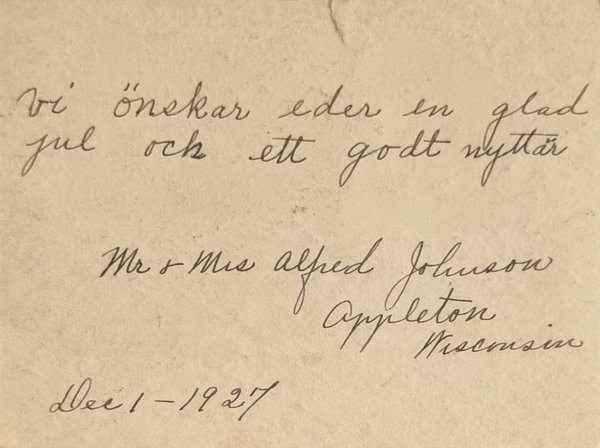 Vi önskar eder en glad
jul och ett godt nyttår
Mr & Mrs Alfred Johnson
Appleton
Wisconsin
Dec 1 - 1927